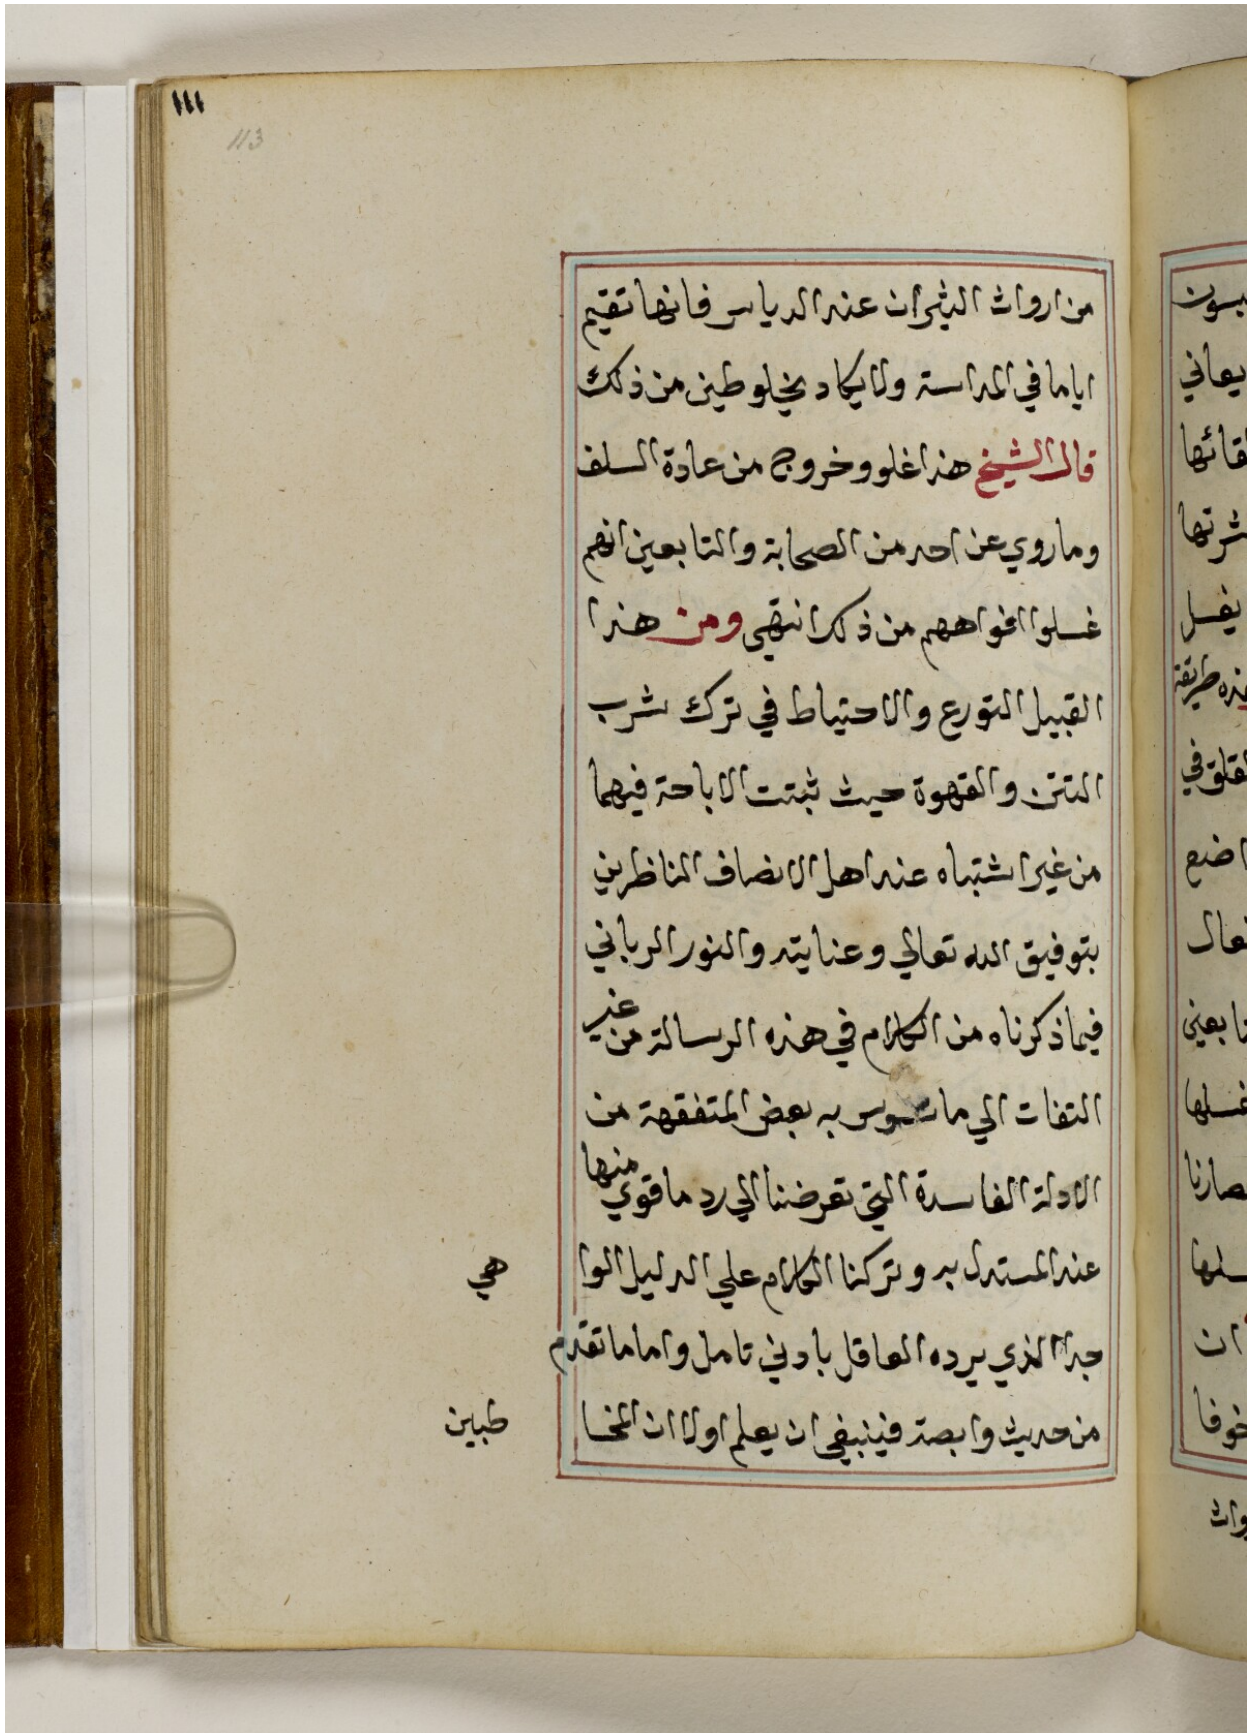 ١١١
113
من ارواث الثيران عند الدياس فانها تقيم
اياما في المداسة ولا يكاد يخلو طين من ذلك
قال الشيخ هذا غلو وخروج من عادة السلف
وما روي عن احد من الصحابة والتابعين انهم
غسلوا افواههم من ذلك انتهى ومن هذا
القبيل التورع والاحتياط في ترك شرب
التتن والقهوة حيث ثبتت الاباحة فيهما
من غير اشتباه عند اهل الانصاف الناظرين
بتوفيق الله تعالي وعنايته والنور الرباني
فيما ذكرناه من الكلام في هذه الرسالة من غير
التفات الي ما به بعض المتفقهة من
الادلة الفاسدة التي تعرضنا الي رد ما قوي منها
عند المستدل به وتركنا الكلام علي الدليل الوا
هي
جدا الذي يرده العاقل بادني تامل واما ما تقدم
من حديث وابصة فينبغي ان يعلم اولا ان المخا
طبين
يعاني
يغسل
هذه طريقة
اضع
خوفا